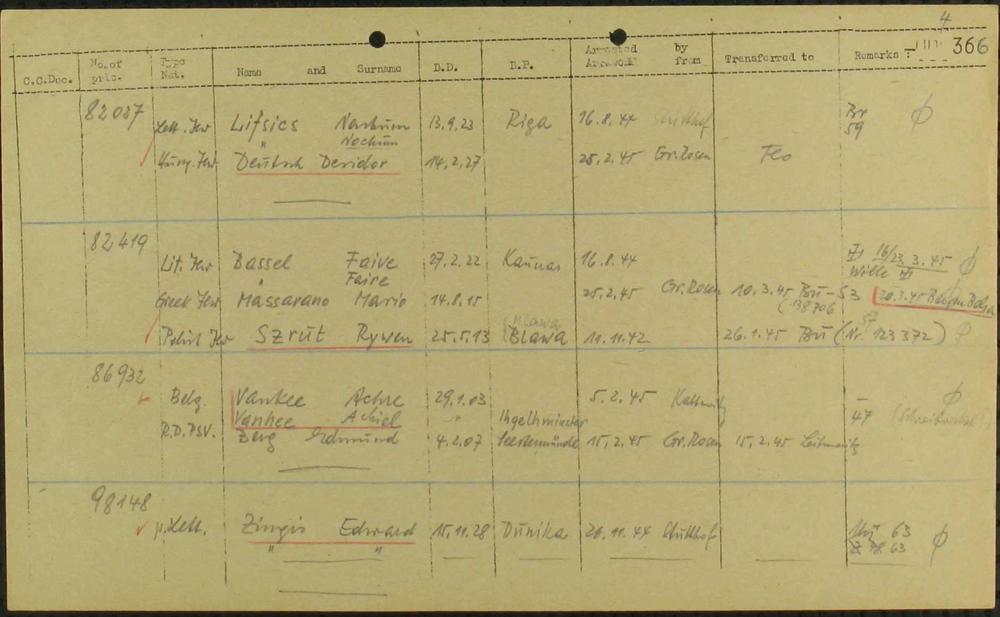 4
366
C.C.Doc. No.of pris. Type Nat. Name and Surname D.D. D.P. Arrested by Arrived from Transferred to Remarks :
82087
Lett. Jew Lifsics Nachum 13.9.23 Riga 16.8.44 Stutthof Br 59
" Nochum
Hung. Jew Deutsch Desider 14.2.27 25.2.45 Gr.Rosen Flo
82419
Lit. Jew Dassel Faive 27.2.22 Kaunas 16.8.44 16/23.3.45
" Faire Wille
Greek Jew Massarano Mario 14.8.15 25.2.45 Gr.Rosen 10.3.45 Bu-S3 20.3.45 Bergen Belsen
(138706
Mlawa
Polish Jew Szrut Rywen 25.5.13 Blawa 11.11.42 26.1.45 Bu (Nr. 123372)
86932
Belg. Vankee Achre 29.1.03 5.2.45 Kattowitz
Vanhee Achiel " Ingelhminster 47
R.D.PSV. Berg Edmund 4.2.07 Seestemünde 15.2.45 Gr.Rosen 15.2.45 Leitmeritz
98148
p.Lett. Zingis Edward 15.11.28 Dunika 26.11.44 Stutthof 63
" " 63